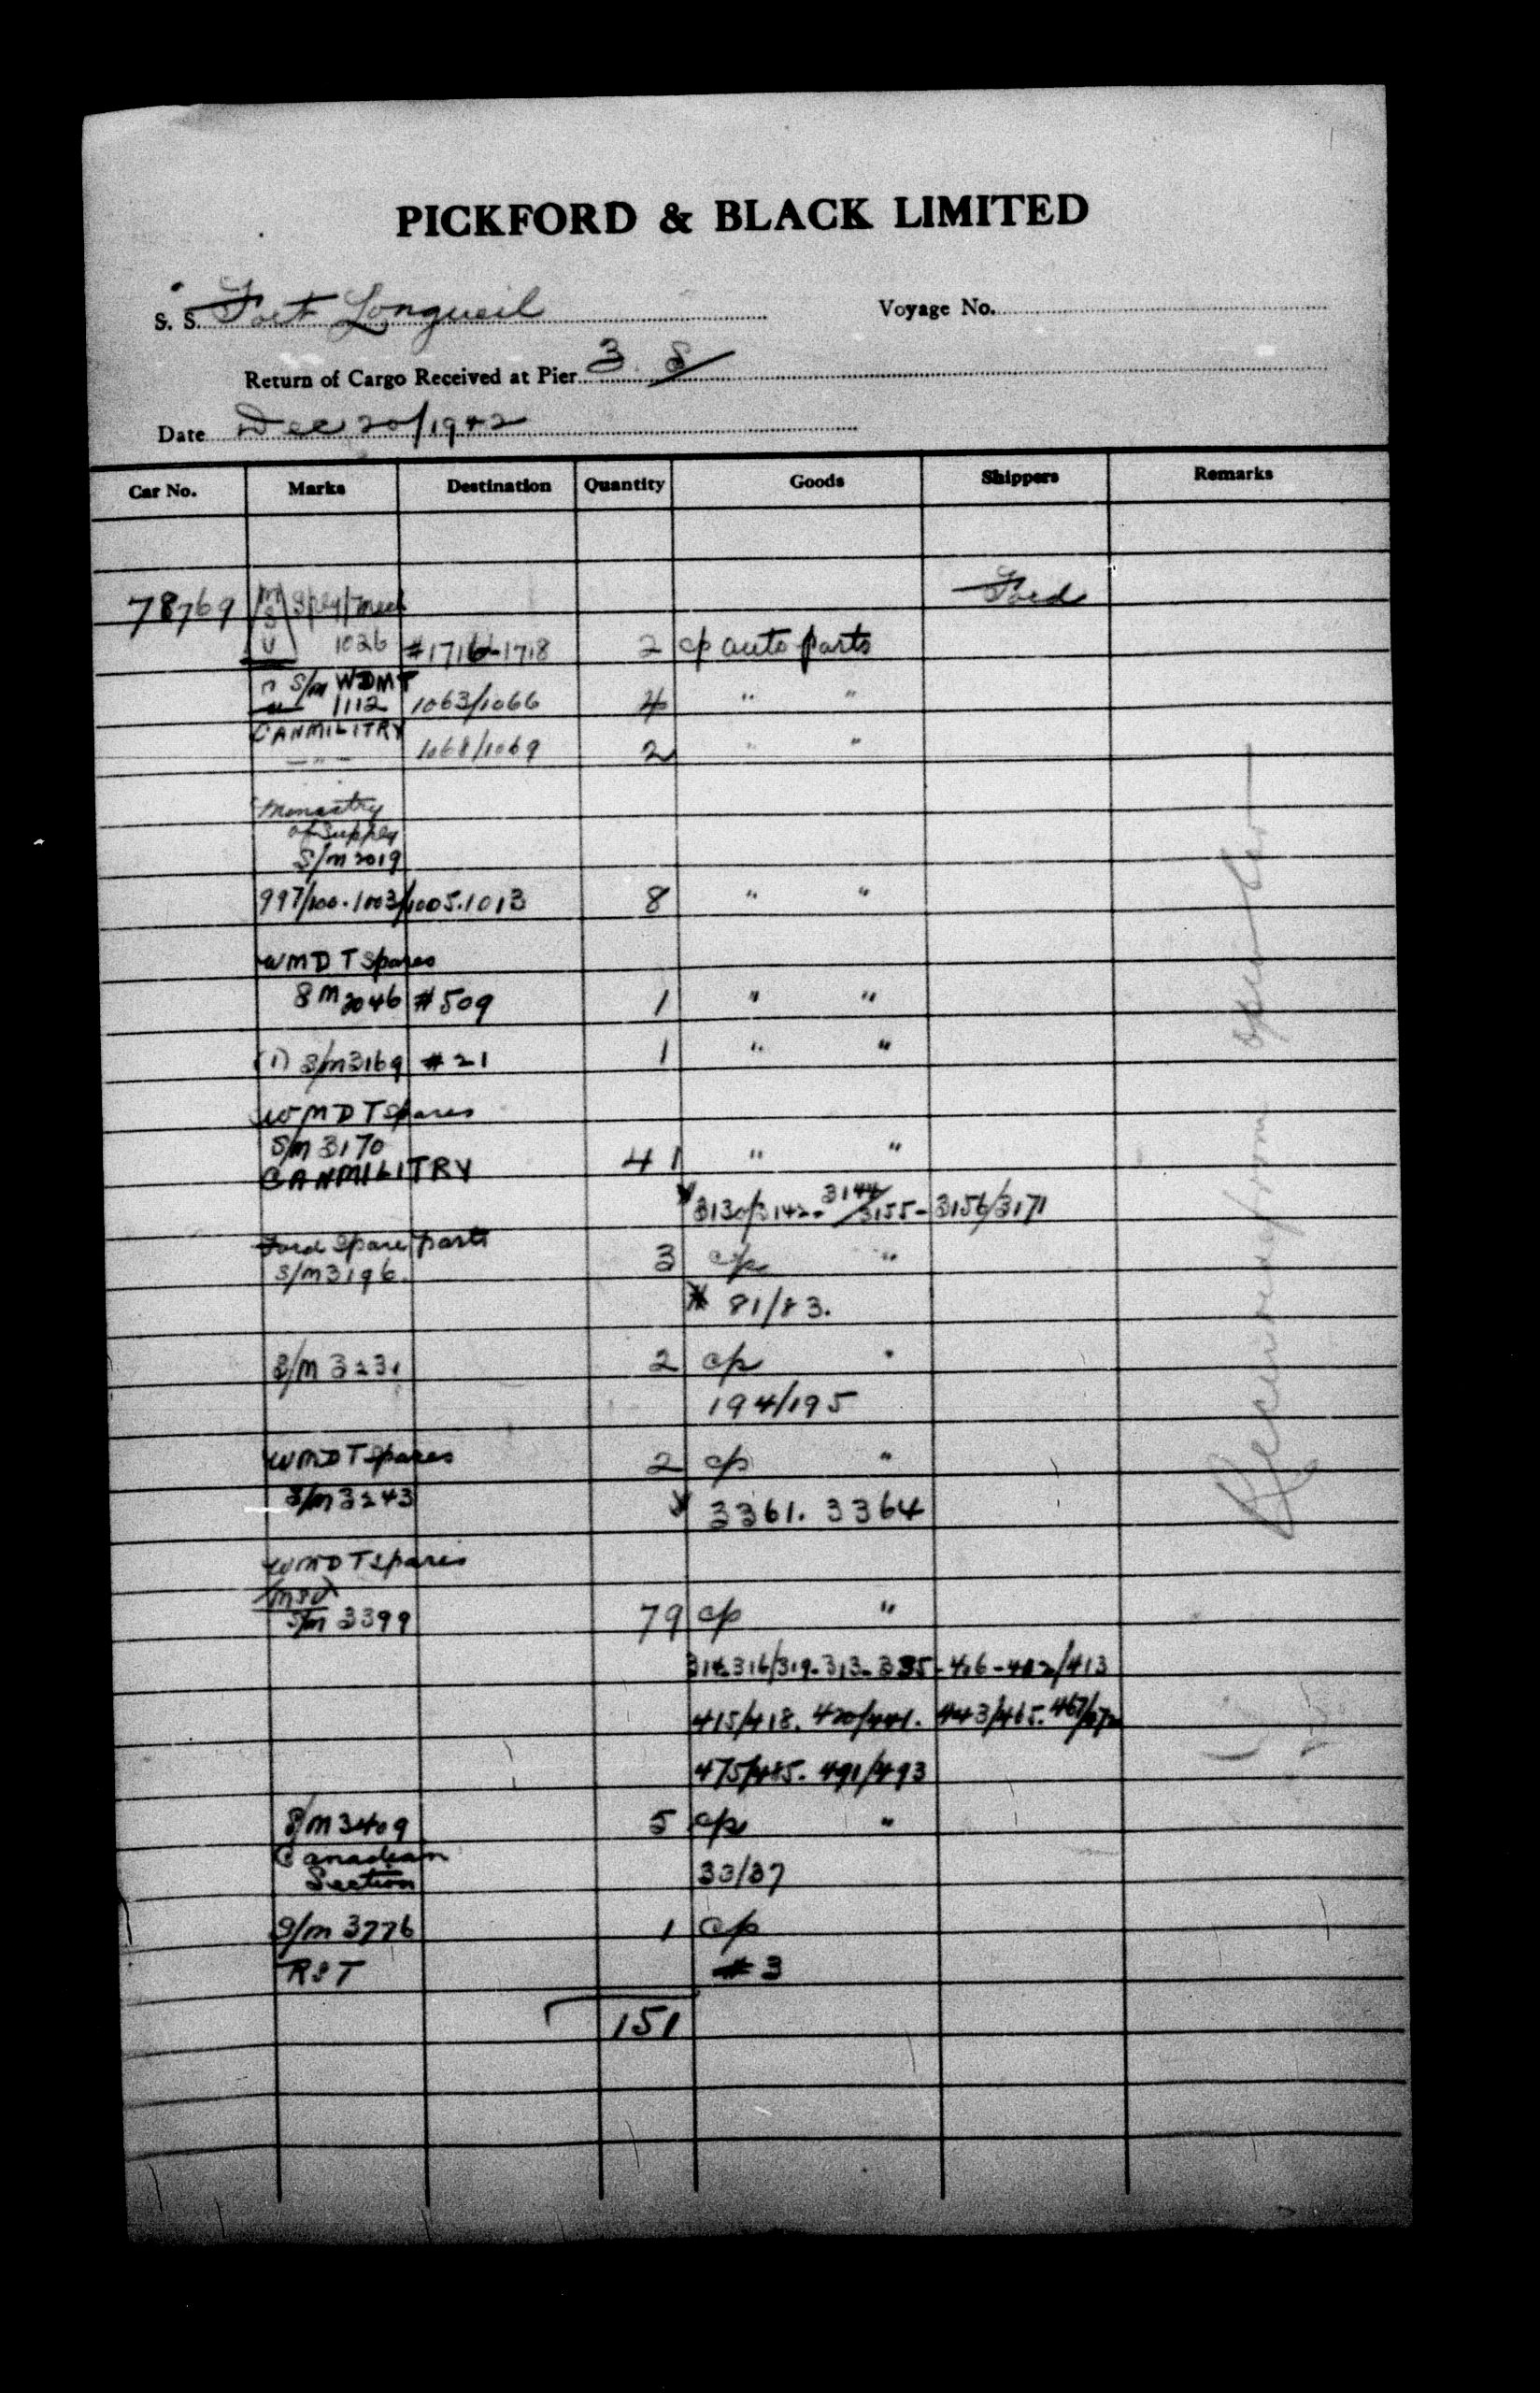 PICKFORD & BLACK LIMITED
S. S. Fort Longueil Voyage No.
Return of Cargo Received at Pier 3 S
Date Dec 20/1942
Car No. Marks Destination Quantity Goods Shippers Remarks
78769 Ford
1026 #1716-1718 2 cp auto parts
S/M WDMT
1112 1063/1066 4 " "
CANMILITRY
- " - 1068/1069 2 " "
Monastry
of Supply
S/M 2019
997/100.1003/1005.1013 8 " "
WMD T Spares
8M 2046 #509 1 " "
(1) S/M 3169 #21 1 " "
WMD T Spares
S/M 3170
CANMILITRY 41 " "
3130/3142. 3144/3155-3156/3171
Ford Spare parts 3 cp "
S/M 3196
81/83.
S/M 3231 2 cp "
194/195
WMD T Spares 2 cp "
S/M 3243 3361. 3364
WMD T Spares
MSU
S/M 3399 79 cp "
314-316/319-313-335-406-412/413
415/418. 420/441. 443/465. 467/472
475/485. 491/493
S/M 3409 5 cp "
Canadian
Section 33/37
S/M 3776 1 cp
RST #3
151
Receiving from